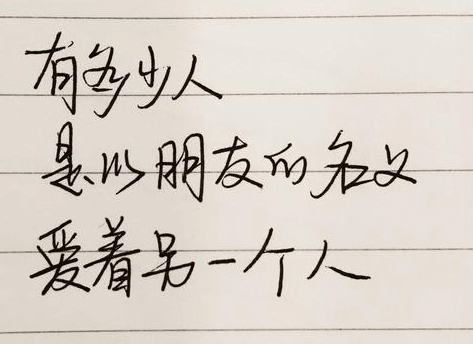 有多少人
是以朋友的名义
爱着另一个人